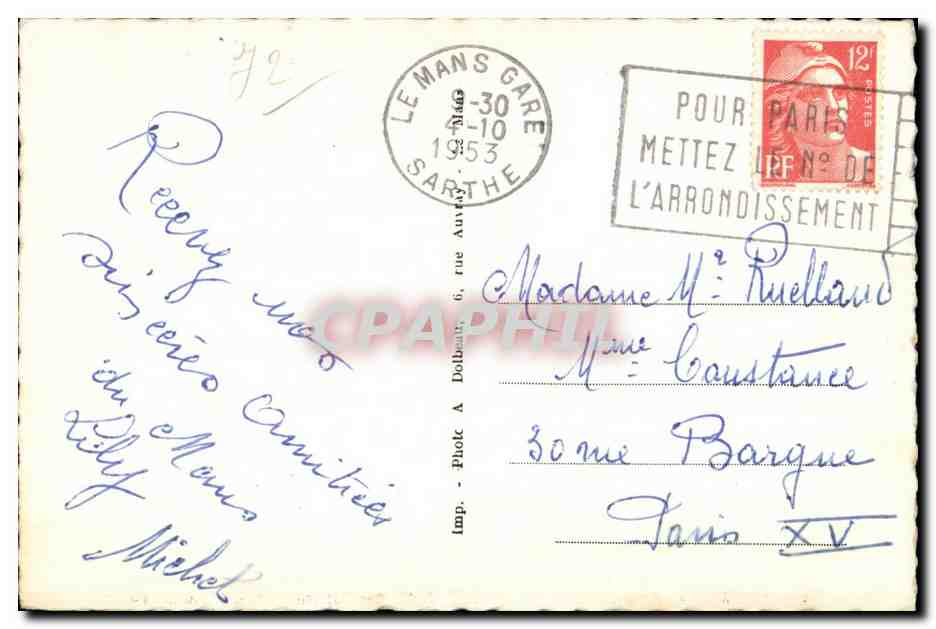 72
LE MANS GARE
-30
4-10
1953
SARTHE
POUR PARIS
METTEZ LE Nº DE
L'ARRONDISSEMENT
12F
POSTES
RF
Recevez nos
sincères amitiés
du Mans
Lily
Michel
Imp. - Photo A Dolbeau, 6, rue Auvray - Le Mans
CPAPHIL
Madame Mᵉ Ruelland
Mme Constance
30 rue Bargue
Paris XV